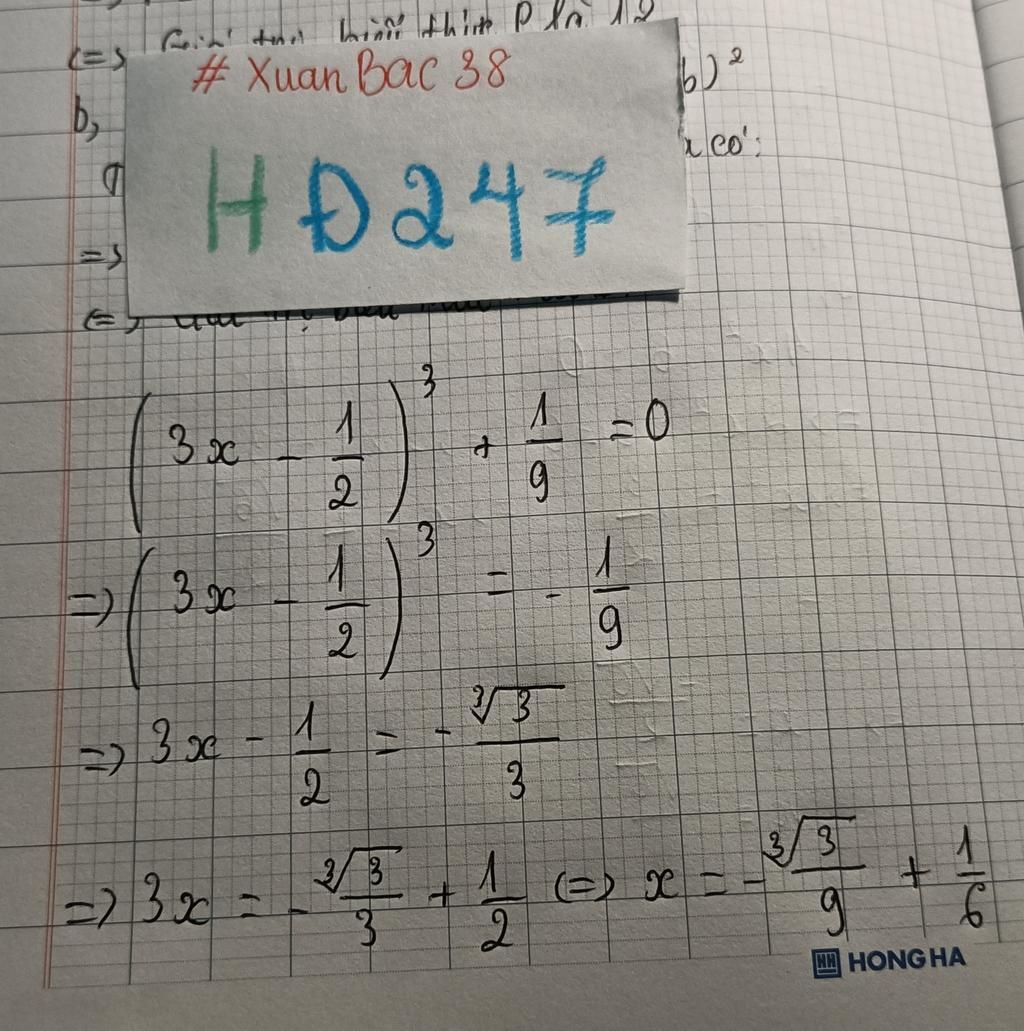 (=>
# XuanBac 38
b)²
b,
HĐ247
có:
=>
(=)
(3x - 1/2)³ + 1/9 = 0
=> (3x - 1/2)³ = - 1/9
=> 3x - 1/2 = - ∛3/3
=> 3x = - ∛3/3 + 1/2 (=) x = - ∛3/9 + 1/6
HONG HA